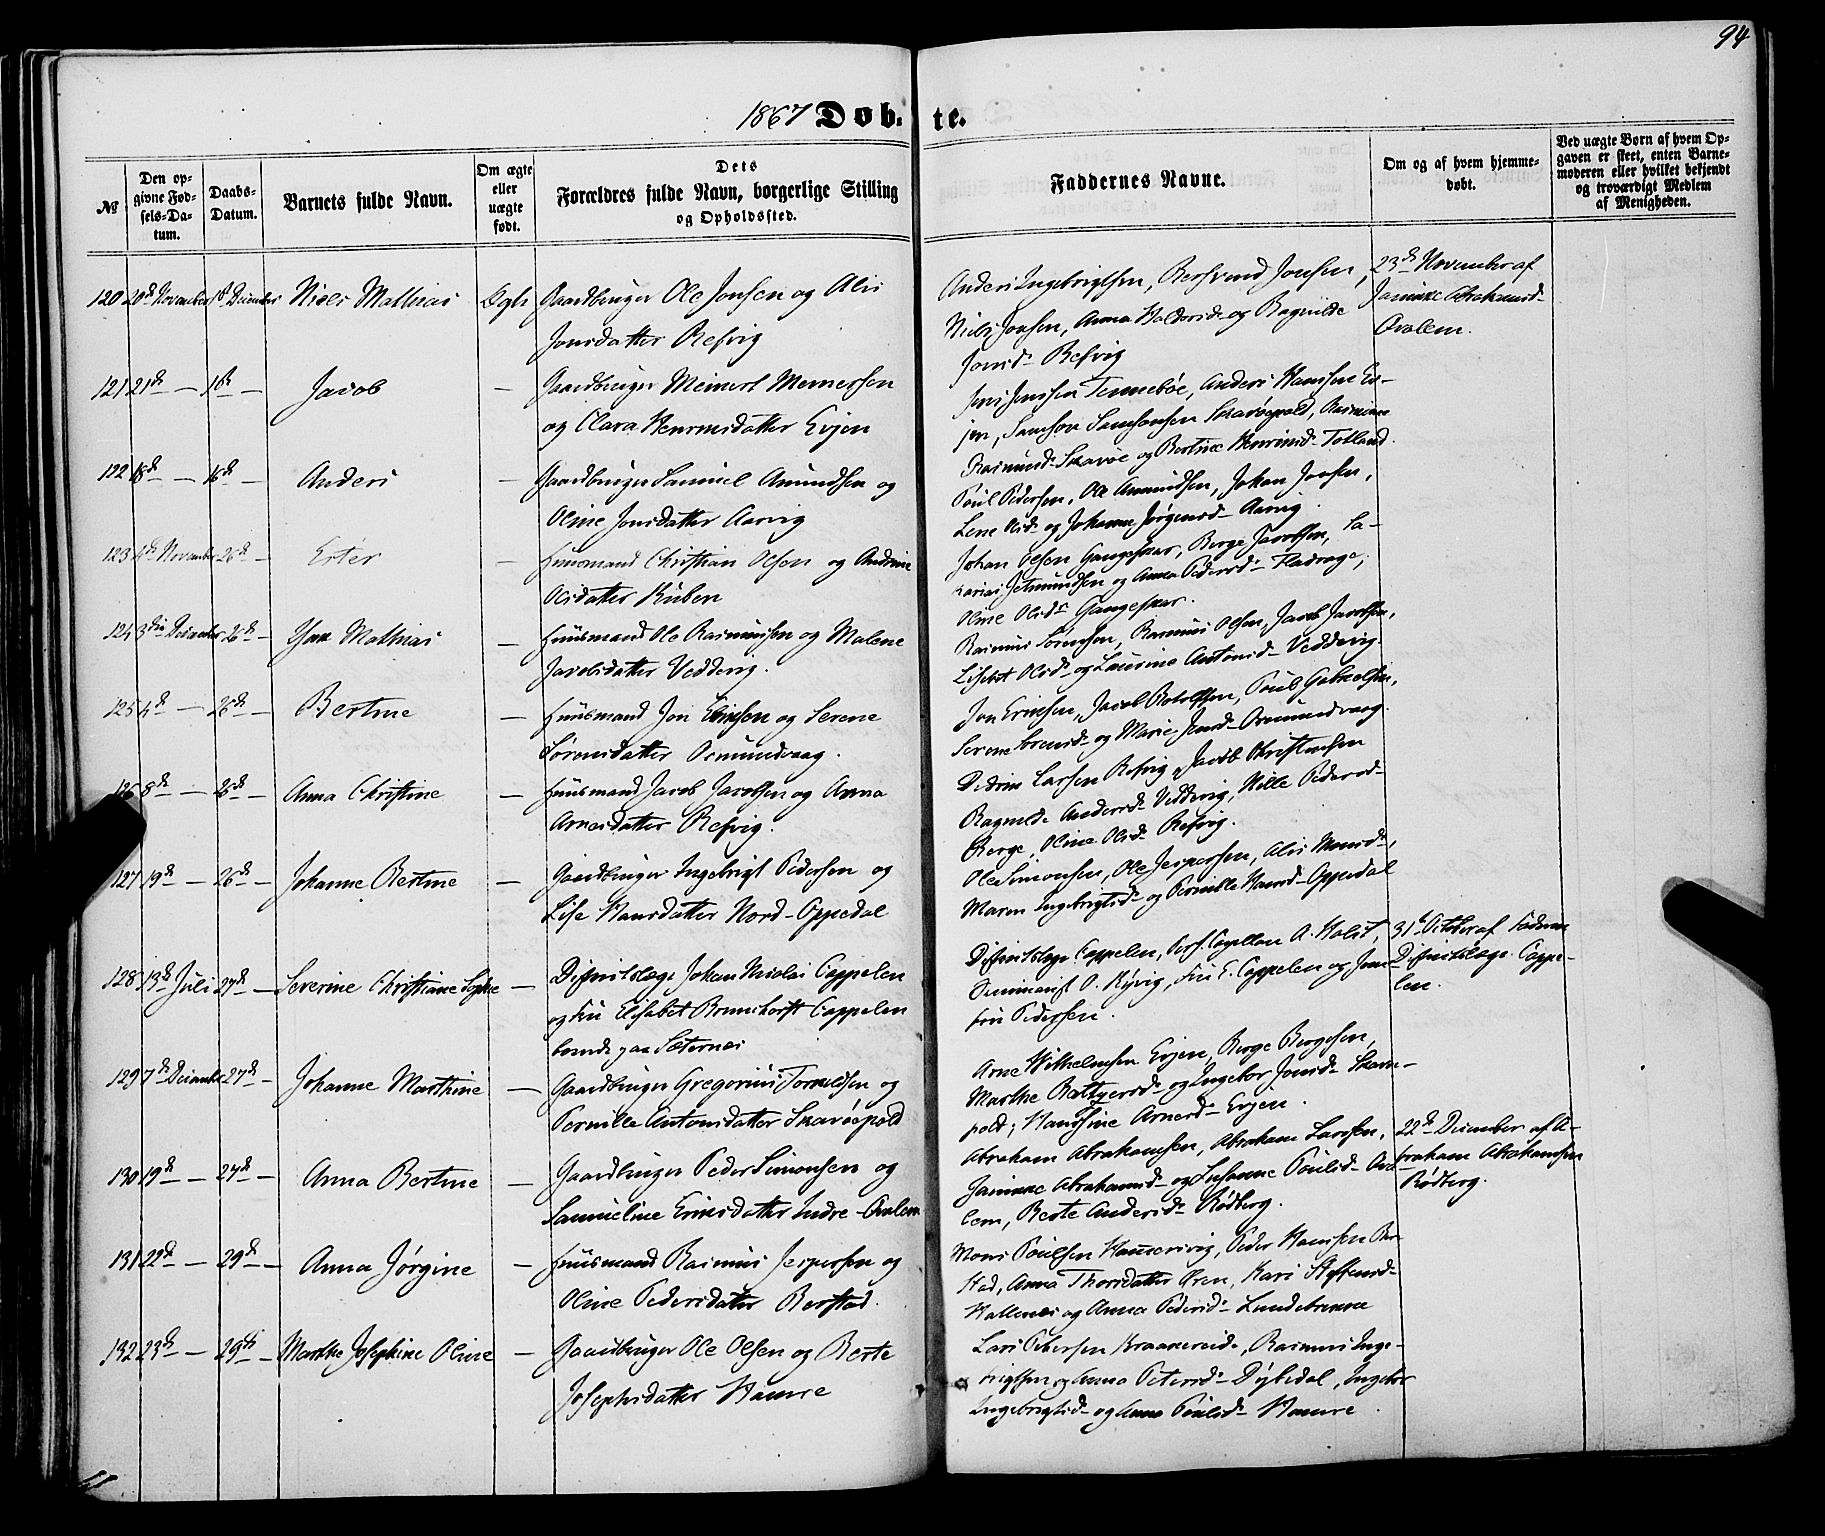 94
1867 Døb- te.
№
Den op-
givne Fød-
sels-Da-
tum.
Daabs-
Datum.
Barnets fulde Navn.
Om ægte
eller
uægte
født.
Dets
Forældres fulde Navn, borgerlige Stilling
og Opholdssted.
Faddernes Navne.
Om og af hvem hjemme-
døbt.
Ved uægte Børn af hvem Op-
gaven er skeet, enten Barne-
moderen eller hvilket bekjendt
og troværdigt Medlem
af Menigheden.
120 20de November 1ste December Niels Mathias Ægte Gaardbruger Ole Jonsen og Alis
Jonsdatter Refvig
Anders Ingebrigtsen, Bersvend Jonsen,
Niels Jonsen, Anna Haldorsd- og Ragnilde
Jonsd- Refvig
23de November af
Jannike Abrahamsd-
Qvalem.
121 21de — 1ste — Jacob — Gaardbruger Meinert Meinertsen
og Clara Henriksdatter Evjen
Jens Jenssen Tennebøe, Anders Hanssen Ev-
jen, Samson Samsonsen Skavøepold, Rasmine
Rasmusd- Skavøe og Bertine Henriksd- Totland.
122 18de — 16de — Anders — Gaardbruger Samuel Amundsen og
Oline Jonsdatter Aarvig
Poul Pedersen, Ole Amundsen, Johan Jonsen,
Lene Olsd- og Johanne Jørgensd- Aarvig.
123 4de November 26de — Ester — Huusmand Christian Olsen og Andrine
Olsdatter Kuben
Johan Olsen Gangeskar, Berge Jacobsen, Za-
karias Jetmundsen og Anna Pedersd- Fladrage,
Oline Olsd- Gangeskar.
124 3die December 26de — Isak Mathias — Huusmand Ole Rasmussen og Malene
Jacobsdatter Vedvig.
Rasmus Sørensen, Rasmus Olsen, Jacob Jacobsen,
Lisebet Olsd- og Laurine Antonsd- Veddevig.
125 4de — 26de — Bertine — Huusmand Jon Eriksen og Serene
Sørensdatter Osmundvaag.
Jon Eriksen, Jacob Rotolfsen, Poul Gabrielsen,
Serene Sørensd- og Marie Jensd- Osmundvaag.
126 8de — 26de — Anna Christine — Huusmand Jacob Jacobsen og Anna
Arnesdatter Refvig.
Didrik Larsen Refvig, Jacob Christensen
Ragnilde Andersd- Veddevig, Hille Pedersd-
Berge, Oline Olsd- Refvig.
127 19de — 26de — Johanne Bertine — Gaardbruger Ingebrigt Pedersen og
Lise Hansdatter Nord-Oppedal
Ole Simonsen, Ole Jespersen, Alis Monsd-,
Maren Ingebrigtsd- og Pernille Hansd- Oppedal
128 13de Juli 27de — Severine Christiane Sophie — Distriktslæge Johan Nicolai Cappelen
og Fru Elisabet Brunchorst Cappelen
boende paa Sæternes
Distriktslæge Cappelen, Pers. Capellan A. Holst,
Seminarist O. Rysvig, Fru E. Cappelen og Jom-
fru Pedersen.
31te October af Faderen
Distriktslæge Cappe-
len.
129 7de December 27de — Johanne Marthine — Gaardbruger Gregorius Tormodsen og
Pernille Antonsdatter Skavøepold
Arne Wilhelmsen Evjen, Berge Bergesen,
Marthe Baltzersd- og Ingebor Jonsd- Skavø-
pold, Hansine Arnesd- Evjen.
130 19de — 27de — Anna Bertine — Gaardbruger Peder Simonsen og
Samueline Eriksdatter Indre-Qvalem
Abraham Abrahamsen, Abraham Larsen,
Jannike Abrahamsd- og Susanne Poulsd- Qva-
lem, Berte Andersd- Rødberg.
22de December af A-
braham Abrahamsen
Rødberg.
131 22de — 29de — Anna Jørgine — Huusmand Rasmus Jespersen og
Oline Pedersdatter Berstad.
Mons Poulsen Hammersvig, Peder Hanssen Ber-
stad, Anna Thorsdatter Øren, Kari Steffensd-
Hallenæs og Anna Pedersd- Lundebrekke
132 23de — 29de — Marthe Josephine Oline — Gaardbruger Ole Olsen og Berte
Josephsdatter Hamre
Lars Petersen Kraakereide, Rasmus Inge-
brigtsen og Anna Petersd- Dybedal, Ingebor
Ingebrigtsd- og Anna Poulsd- Hamre.